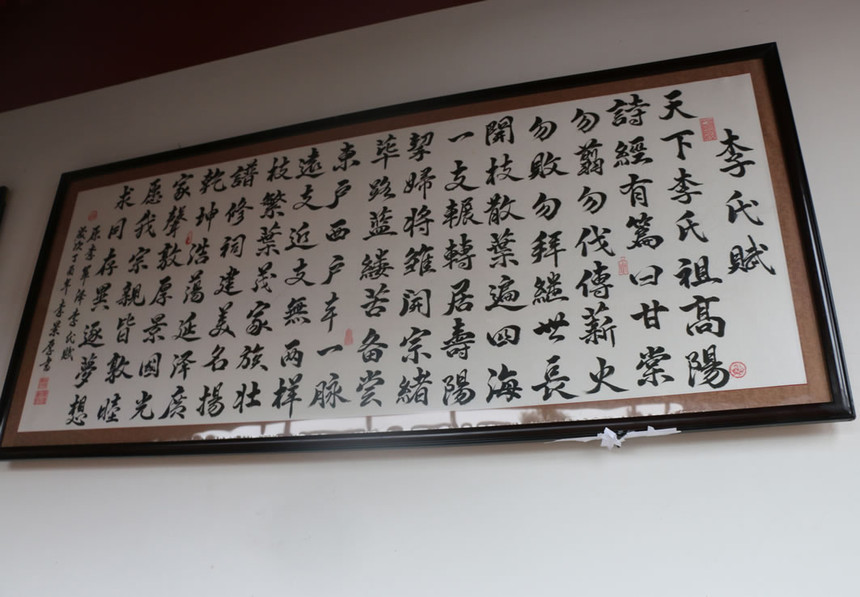 李氏賦
天下李氏祖高陽
詩經有篇曰甘棠
勿翦勿伐傳薪火
勿敗勿拜繼世長
開枝散葉遍四海
一支輾轉居壽陽
挈婦將雛開宗緒
篳路藍縷苦备尝
東户西户本一脉
遠支近支無两樣
枝繁葉茂家族壮
譜修祠建美名揚
乾坤浩蕩延泽廣
家聲敦厚景國光
愿我宗親皆敦睦
求同存異逐夢想
歲次丁酉年李